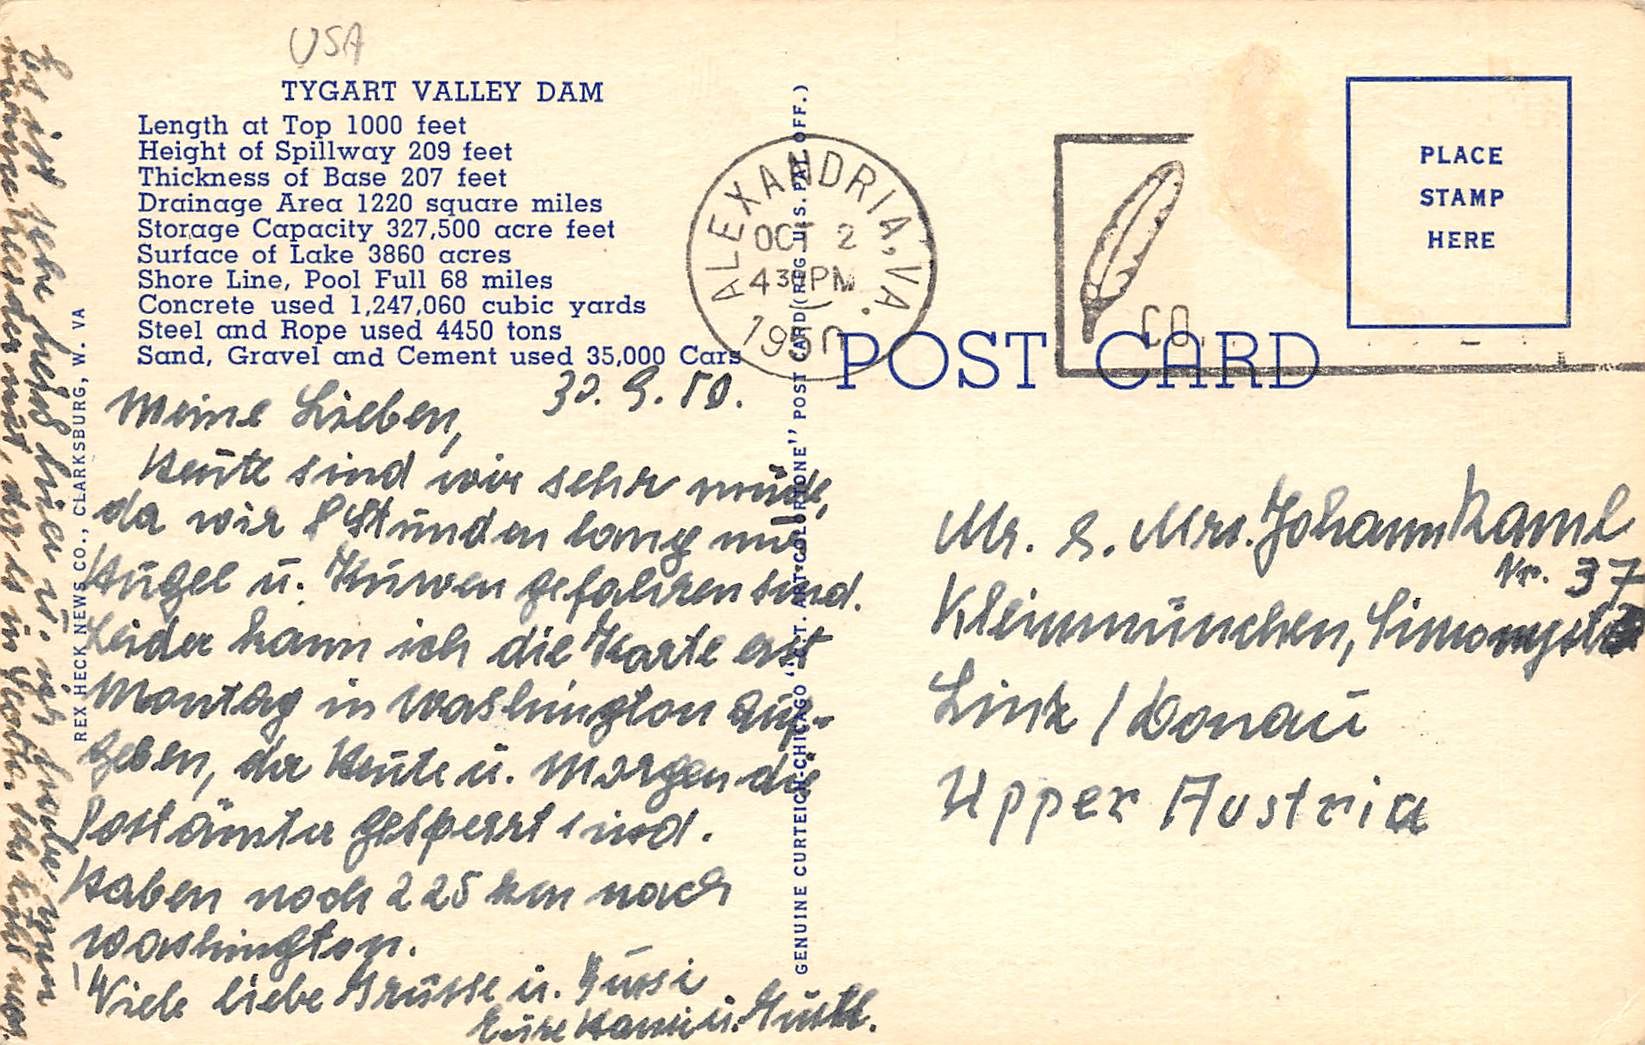 USA
TYGART VALLEY DAM
Length at Top 1000 feet
Height of Spillway 209 feet
Thickness of Base 207 feet
Drainage Area 1220 square miles
Storage Capacity 327,500 acre feet
Surface of Lake 3860 acres
Shore Line, Pool Full 68 miles
Concrete used 1,247,060 cubic yards
Steel and Rope used 4450 tons
Sand, Gravel and Cement used 35,000 Cars
30. 9. 50.
Meine Lieben,
Heute sind wir sehr müde,
da wir 8 Stunden lang nur
Hügel u. Kurven gefahren sind.
Leider kann ich die Karte erst
Montag in Washington auf-
geben, da Heute u. Morgen die
Postämter gesperrt sind.
Haben noch 225 km nach
Washington.
Viele liebe Grüsse u. Bussi
Eure Hansi u.
Es ist sehr heiß hier u. ich
REX HECK NEWS CO., CLARKSBURG, W. VA
GENUINE CURTEICH-CHICAGO "C.T. ART-COLORTONE" POST CARD (REG. U.S. PAT. OFF.)
ALEXANDRIA, VA.
OCT 2
430 PM
1950
CO.
POST CARD
PLACE
STAMP
HERE
Mr. & Mrs. Johann
Nr. 37
Kleinmünchen,
Linz / Donau
Upper Austria